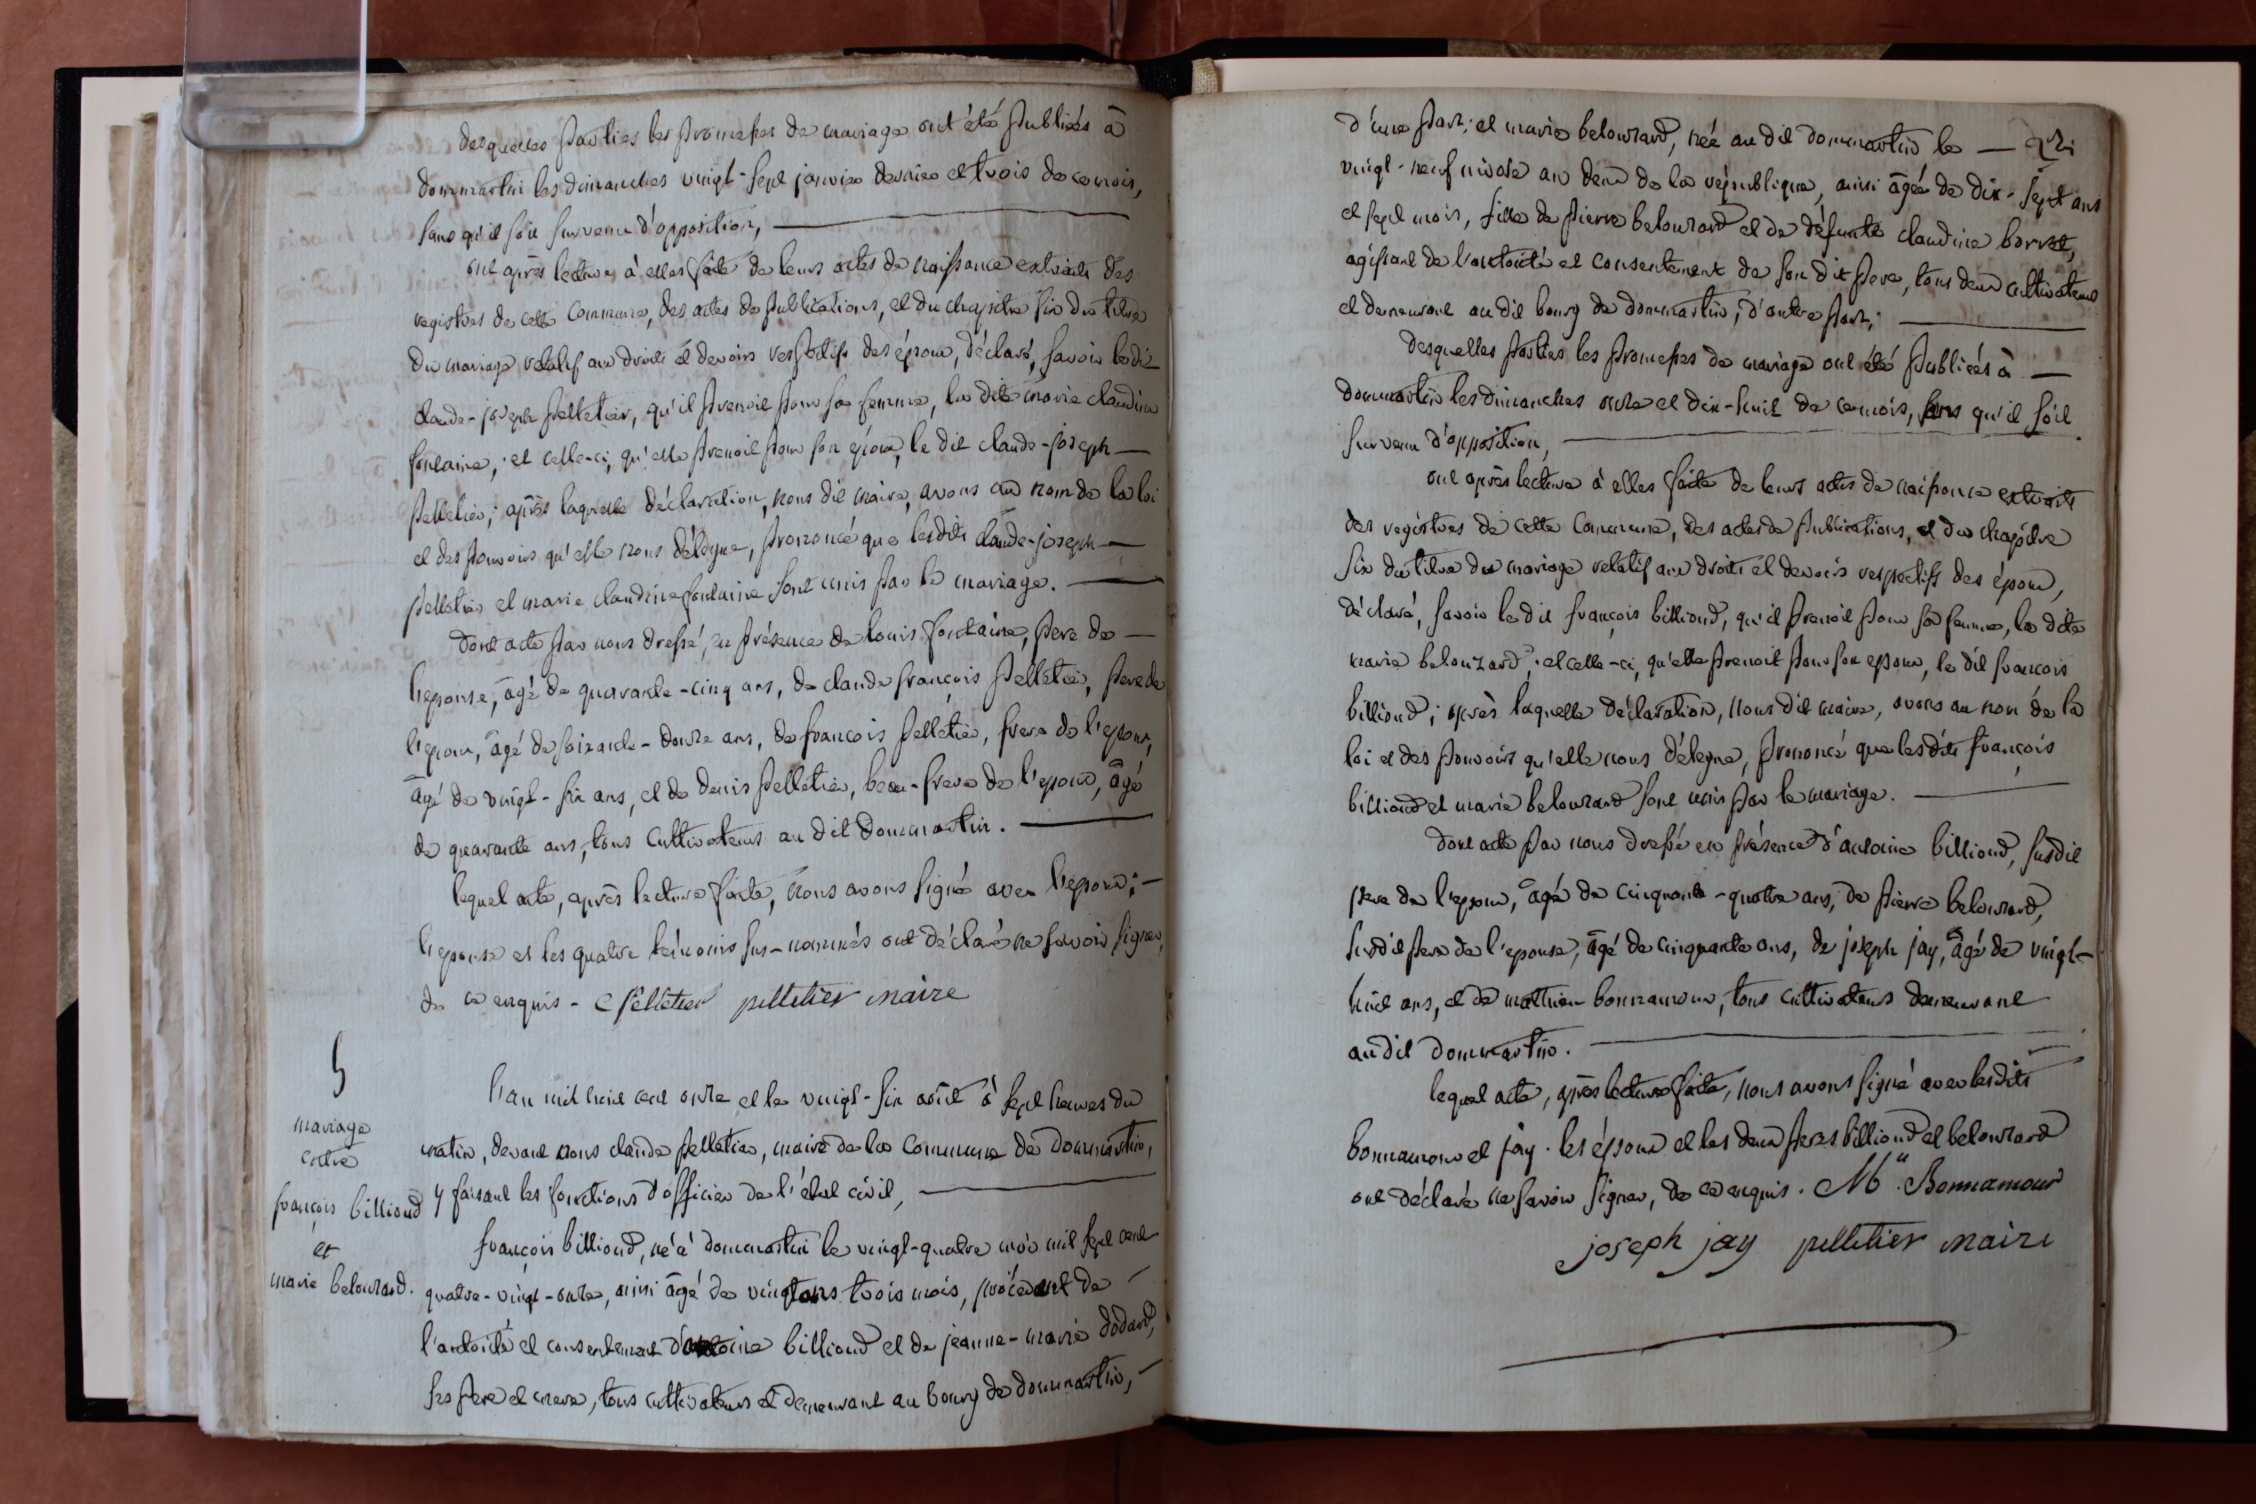 desquelles parties les promesses de mariage ont été publiées à
dommartin les dimanches vingt-sept janvier dernier et trois de ce mois,
sans qu'il soit survenu d'opposition,
ont après lecture à elles faite de leurs actes de naissance extraits des
registres de cette commune, des actes de publications, et du chapitre six du titre
du mariage relatif aux droits et devoirs respectifs des époux, déclaré, savoir le dit
claude-joseph pelletier, qu'il prenoit pour sa femme, la dite marie claudine
fontaine, et celle-ci, qu'elle prenoit pour son époux, le dit claude-joseph
pelletier; après laquelle déclaration, nous dit maire, avons au nom de la loi
et des pouvoirs qu'elle nous délegue, prononcé que lesdits claude-joseph
pelletier et marie claudine fontaine sont unis par le mariage.
dont acte par nous dressé, en présence de louis fontaine, pere de
l'epouse, âgé de quarante-cinq ans, de claude françois pelletier, pere de
l'epoux, âgé de soixante-douze ans, de francois pelletier, frere de l'epoux,
âgé de vingt-six ans, et de denis pelletier, beau-frere de l'epoux, âgé
de quarante ans, tous cultivateurs au dit dommartin.
lequel acte, après lecture faite, nous avons signé avec l'epoux;
l'epouse et les quatre témoins sus-nommés ont déclaré ne savoir signer,
de ce enquis - C pelletier pelletier maire
5
mariage
entre
françois billioud
et
marie belouzard.
l'an mil huit cent onze et le vingt-six août à sept heures du
matin, devant nous claude pelletier, maire de la commune de dommartin,
y faisant les fonctions d'officier de l'état civil,
françois billioud, né à dommartin le vingt-quatre mai mil sept cent
quatre-vingt-onze, ainsi âgé de vingt ans trois mois, procédant de
l'autorité et consentement d'antoine billioud et de jeanne-marie dodard,
ses pere et mere, tous cultivateurs et demeurant au bourg de dommartin,
d'une part; et marie belouzard, née au dit dommartin le
vingt-neuf nivose an deux de la république, ainsi âgée de dix-sept ans
et sept mois, fille de pierre belouzard et de défunte claudine borret,
agissant de l'autorité et consentement de son dit pere, tous deux cultivateurs
et demeurant au dit bourg de dommartin, d'autre part;
desquelles parties les promesses de mariage ont été publiées à
dommartin les dimanches onze et dix-huit de ce mois, sans qu'il soit
survenu d'opposition,
ont après lecture à elles faite de leurs actes de naissance extraits
des registres de cette commune, des actes de publications, et du chapitre
six du titre du mariage relatif aux droits et devoirs respectifs des époux,
déclaré, savoir le dit françois billioud, qu'il prenoit pour sa femme, la dite
marie belouzard; et celle-ci, qu'elle prenoit pour son epoux, le dit francois
billioud; après laquelle déclaration, nous dit maire, avons au nom de la
loi et des pouvoirs qu'elle nous délegue, prononcé que lesdits françois
billioud et marie belouzard sont unis par le mariage.
dont acte par nous dressé en présence d'antoine billioud, susdit
pere de l'epoux, âgé de cinquante-quatre ans, de pierre belouzard,
susdit pere de l'epouse, âgé de cinquante ans, de joseph jay, âgé de vingt-
huit ans, et de mathieu bonnamour, tous cultivateurs demeurant
au dit dommartin.
lequel acte, après lecture faite, nous avons signé avec lesdits
bonnamour et jay. les époux et les deux peres billioud et belouzard
ont déclaré ne savoir signer, de ce enquis. M" Bonnamour
joseph jay pelletier maire